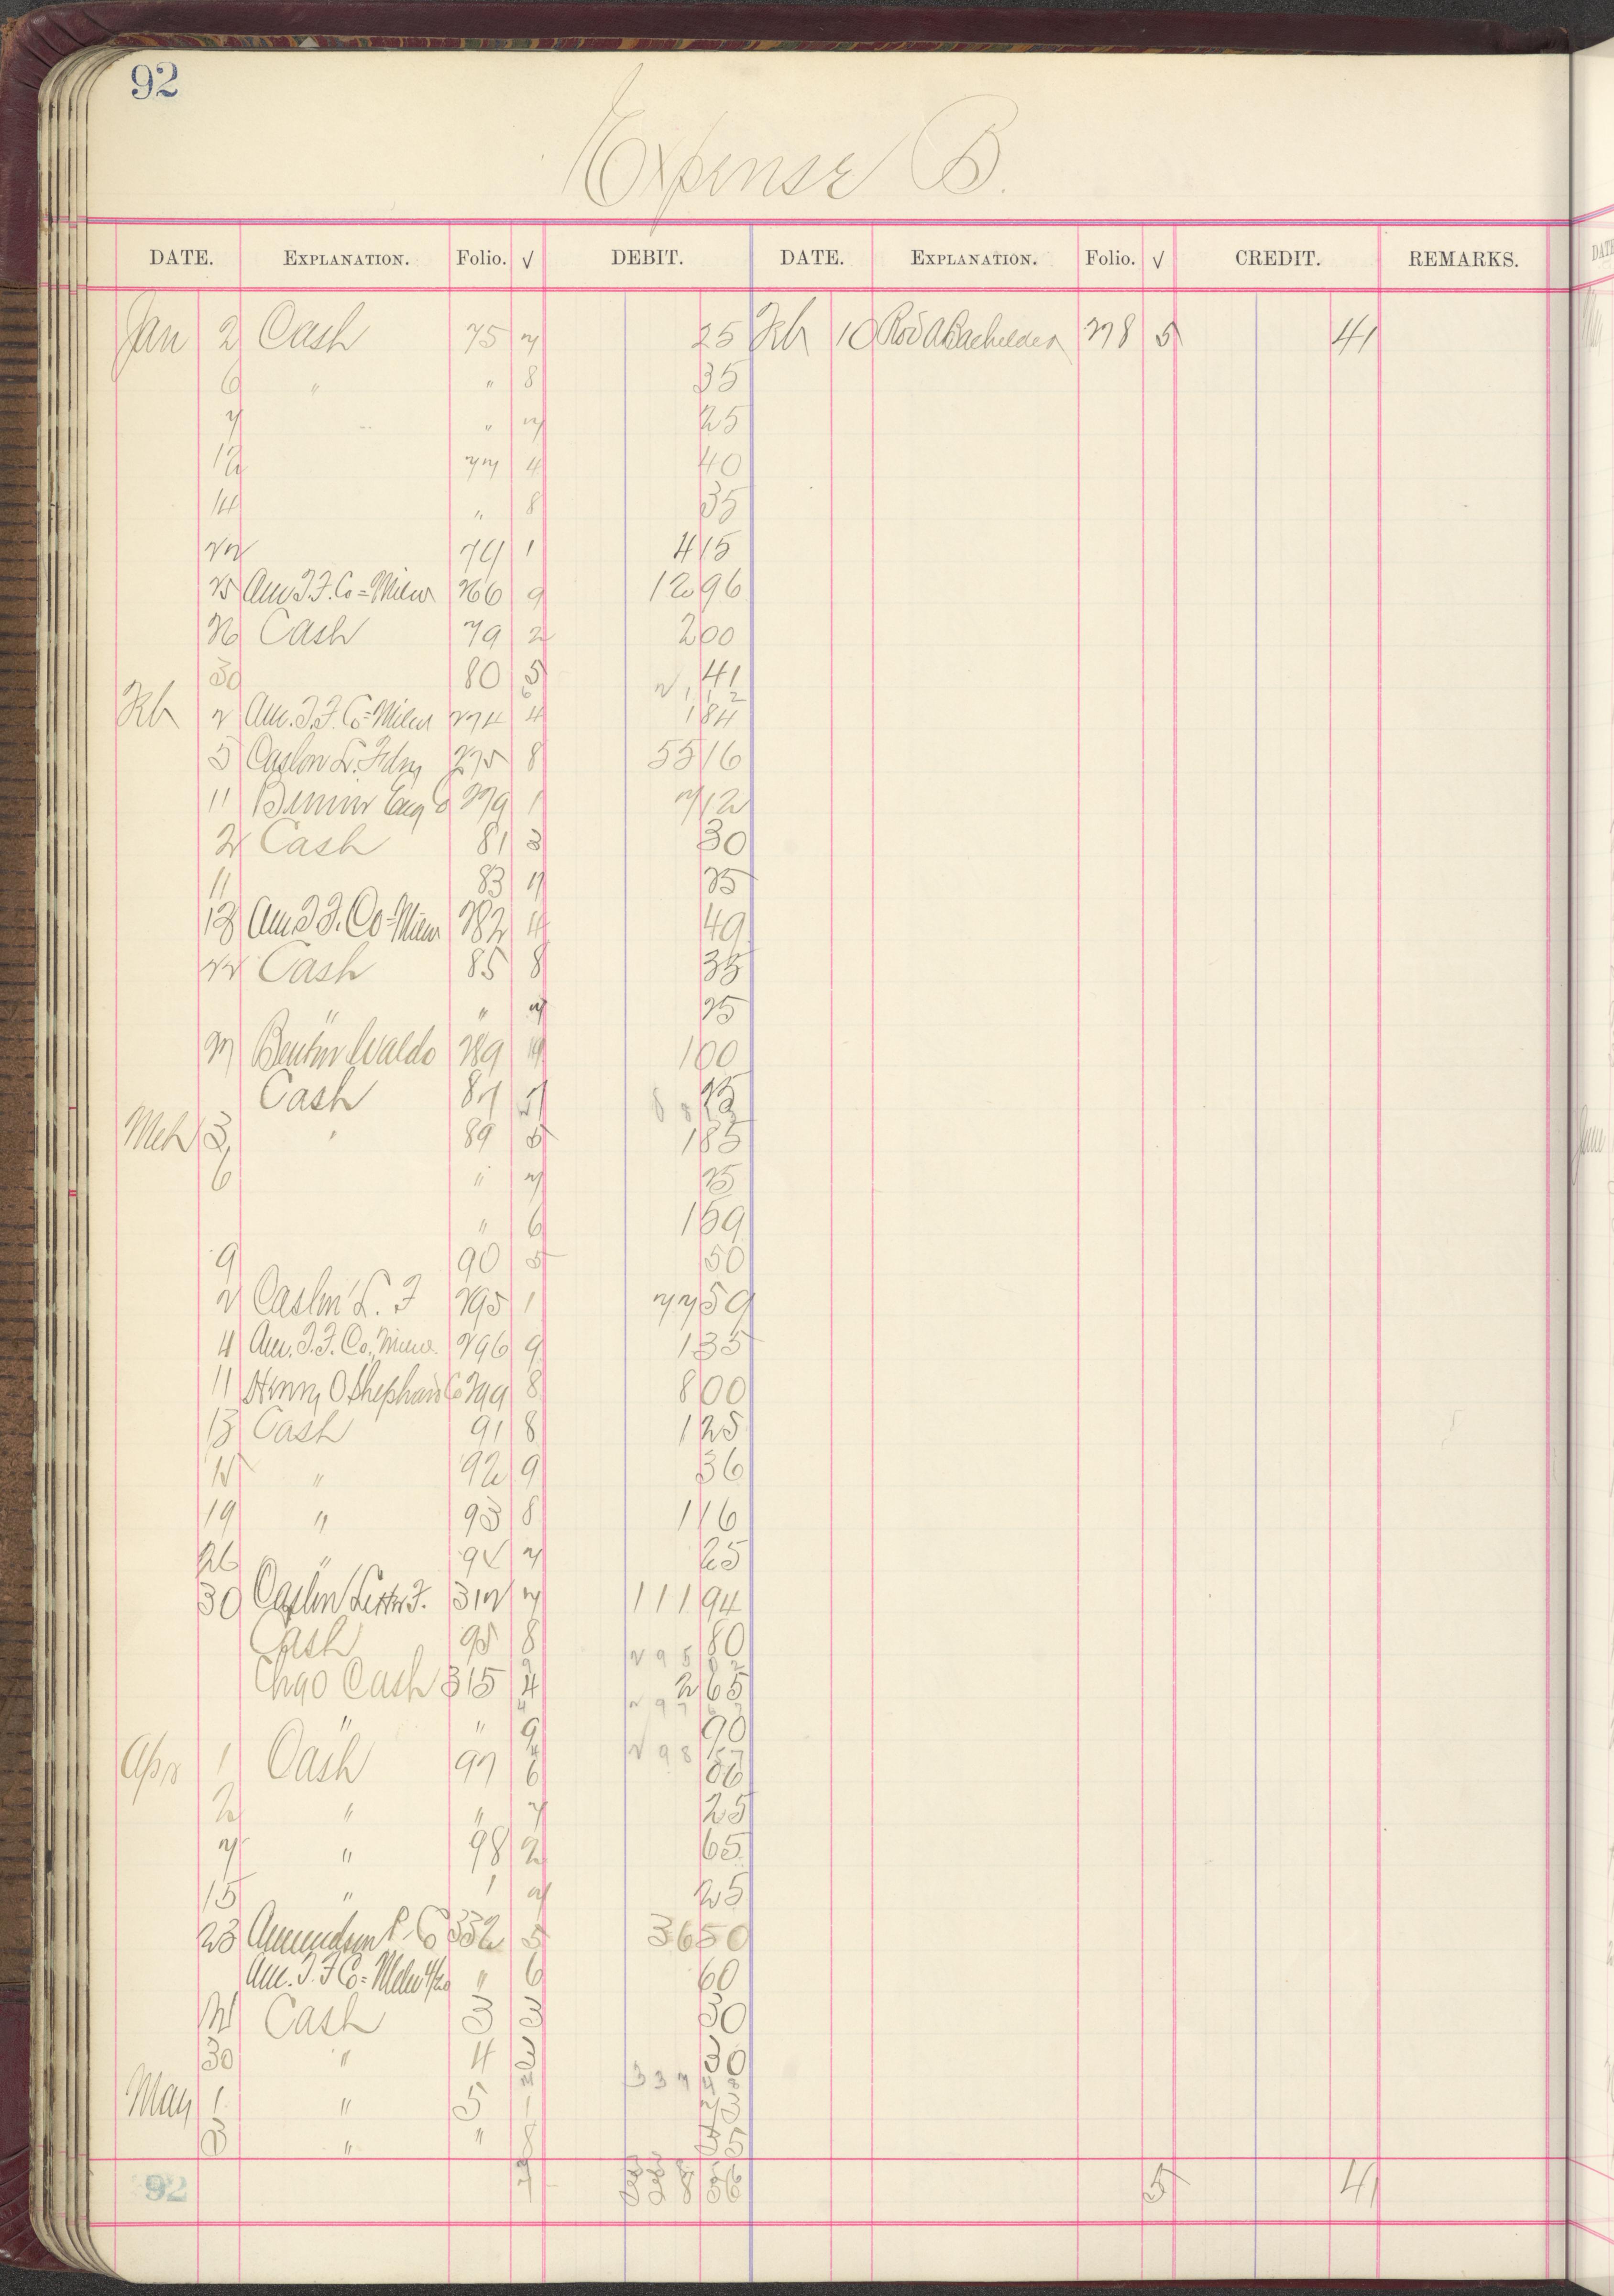 92
Expense B.
DATE. EXPLANATION. Folio. √ DEBIT. DATE. EXPLANATION. Folio. √ CREDIT. REMARKS.
Jan 2 Cash 75 7 25 Feb 10 Rod A Bachelder 278 5 41
6 " " 8 35
7 " " 7 25
12 77 4 40
14 " 8 35
22 79 1 4 15
25 Am T.F. Co = Milw 266 9 12 96
26 Cash 79 2 2 00
30 80 5 41
Feb 2 Am. T.F. Co = Milw 274 4 1 84
5 Caslon L. Fdry 275 8 55 16
11 Eng Co 279 1 7 12
2 Cash 81 3 30
11 83 7 25
13 Am T.F. Co = Milw 282 4 49
22 Cash 85 8 35
" " 7 25
27 Benton Waldo 289 1 00
Cash 87 7 25
Mch 3 " 89 5 1 85
6 " 7 25
" 6 1 59
9 90 5 50
2 Caslon L. F 295 1 77 59
4 Am. T.F. Co., Milw. 296 9 1 35
11 Henry O Shephard Co 299 8 8 00
13 Cash 91 8 1 25
15 " 92 9 36
19 " 93 8 1 16
26 " 94 7 25
30 Caslon Letter F. 312 7 111 94
Cash 95 8 80
Chgo Cash 315 4 2 65
" " 9 90
Apr 1 Cash 97 6 06
2 " " 7 25
7 " 98 2 65
15 " 1 7 25
23 Amundson P. Co 332 5 36 50
Am. T.F Co = Milw 4/20 " 6 60
Cash 3 3 30
30 " 4 3 30
May 1 " 5 1
3 " " 8 35
92 5 41